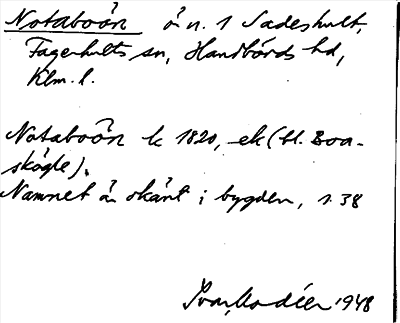 Notaboån å n. 1 Sadeshult,
Fagerhults sn, Handbörds hd,
Klm. l.
Notaboån k 1820, ek (bl. Boa-
skögle).
Namnet är okänt i bygden, s. 38
Ivar Modéer 1948